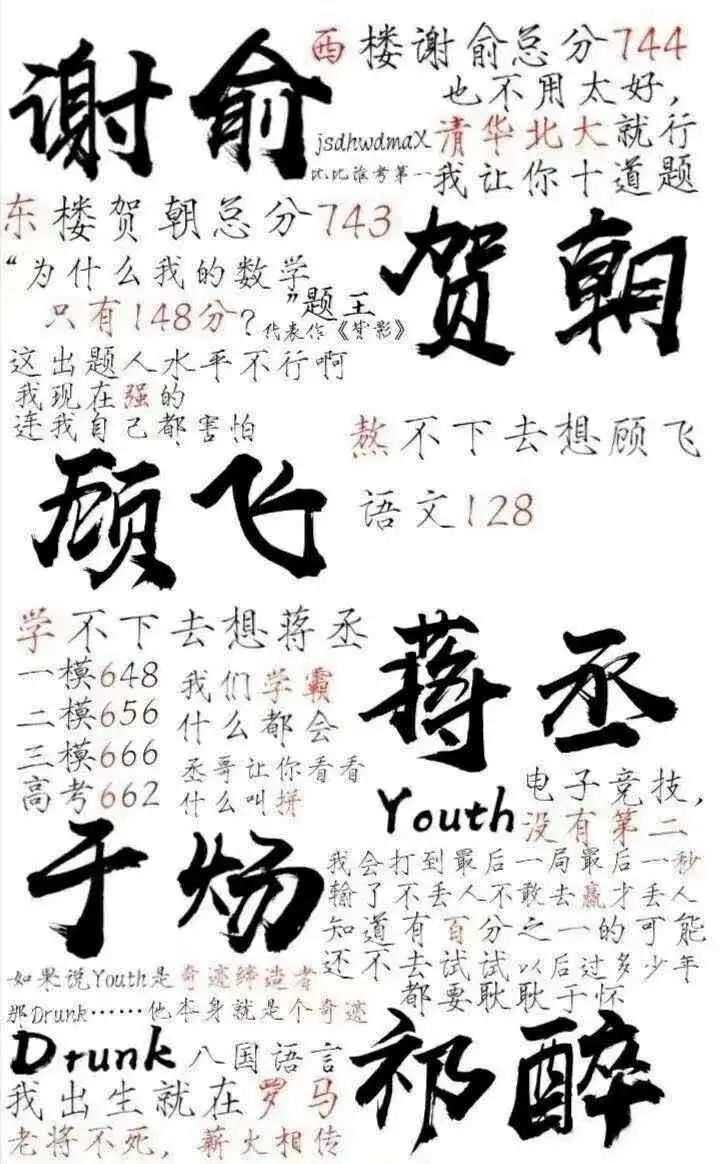 谢俞
西楼谢俞总分744
也不用太好，
jsdhwdmaX
清华北大就行
比比谁考第一
我让你十道题
东楼贺朝总分743
贺朝
“为什么我的数学
只有148分？”
题王
代表作《梦影》
这出题人水平不行啊
我现在强的
连我自己都害怕
熬不下去想顾飞
语文128
顾飞
学不下去想蒋丞
蒋丞
一模648
二模656
三模666
高考662
我们学霸
什么都会
丞哥让你看看
什么叫拼
Youth
电子竞技，
没有第二
于炀
我会打到最后一局最后一秒
输了不丢人不敢去赢才丢人
知道有百分之一的可能
还不去试试以后过多少年
都要耿耿于怀
如果说Youth是奇迹缔造者
那Drunk……他本身就是个奇迹
Drunk
八国语言
祁醉
我出生就在罗马
老将不死，薪火相传